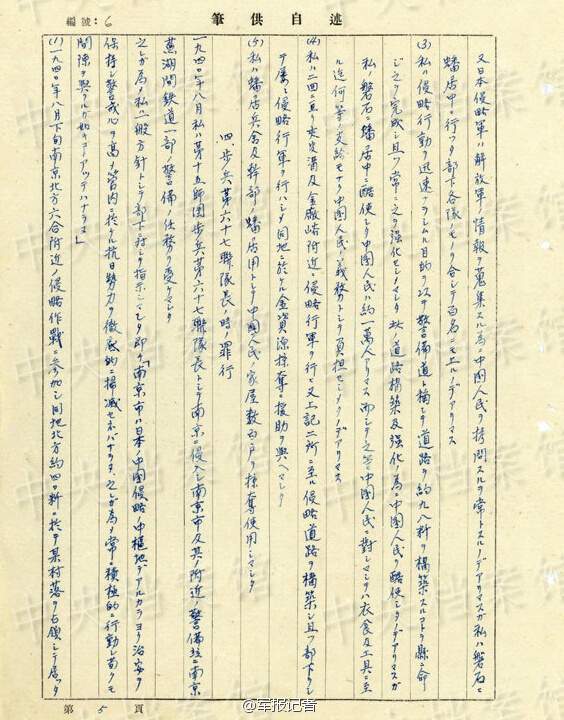 編號：6
述自供筆
又日本侵略軍ハ解放軍ノ情報ヲ蒐集スル爲ニ中國人民ヲ拷問スルヲ常トスルノデアリマスガ私ハ磐石ニ
蟠居中ニ行ツタ部下各隊ノモノヲ合シテ百名ニモ上ルノデアリマス
(3)私ハ侵略行動ヲ迅速ナラシムル目的ヲ以テ警備道ト稱シテ道路ヲ約九八粁ヲ構築スルコトヲ縣ニ命
ジ之ヲ完成シ且ツ常ニ之ヲ強化セシメマシタ 此ノ道路構築及強化ノ爲ニ中國人民ヲ酷使シタノデアリマスガ
私ノ磐石ニ蟠居中ニ酷使シタ中國人民ハ約一萬人デアリマス 而シテ之等中國人民ニ對シマシテハ衣食及工具ニ至
ル迄何等ノ支給モナク中國人民ノ義務トシテ負担セシメタノデアリマス
(4)私ハ二四ニ亘リ夾皮溝及金廠峪附近ニ侵略行軍ヲ行ヒ又上記二所ニ至ル侵略道路ヲ構築シ且ツ部下ヲシ
テ屡々侵略行軍ヲ行ハシメ同地ニ於ケル金資源採奪ニ援助ヲ與ヘマシタ
(5)私ハ蟠居兵舍及幹部ノ蟠居用トシテ中國人民ノ家屋數百戸ヲ掠奪使用シマシタ
四、步兵第六十七聯隊長ノ時ノ罪行
一九四〇年八月私ハ第十五師團步兵第六十七聯隊長トシテ南京ニ侵入シ南京市及其ノ附近ノ警備並ニ南京
蕪湖間鉄道一部ノ警備ノ任務ヲ受ケマシタ
之レガ爲メ私ハ一般方針トシテ部下ニ対シテ指示シマシタ即チ「南京市ハ日本ノ中國侵略ノ中樞地デアルカラヨリ治安ヲ
保持シ警戒心ヲ高メ管内ニ於ケル抗日勢力ヲ徹底的ニ掃滅セネバナラヌ、之レガ爲メ常ニ積極的ニ行動シ苟クモ
間隙ヲ與ヘルガ如キコトアツテハナラヌ」
(1)一九四〇年八月下旬南京北方六合附近ノ侵略作戰ニ參加シ同地北方約四〇粁ニ於テ某村落ヲ占領シテ居ツタ
第5頁
@军报记者